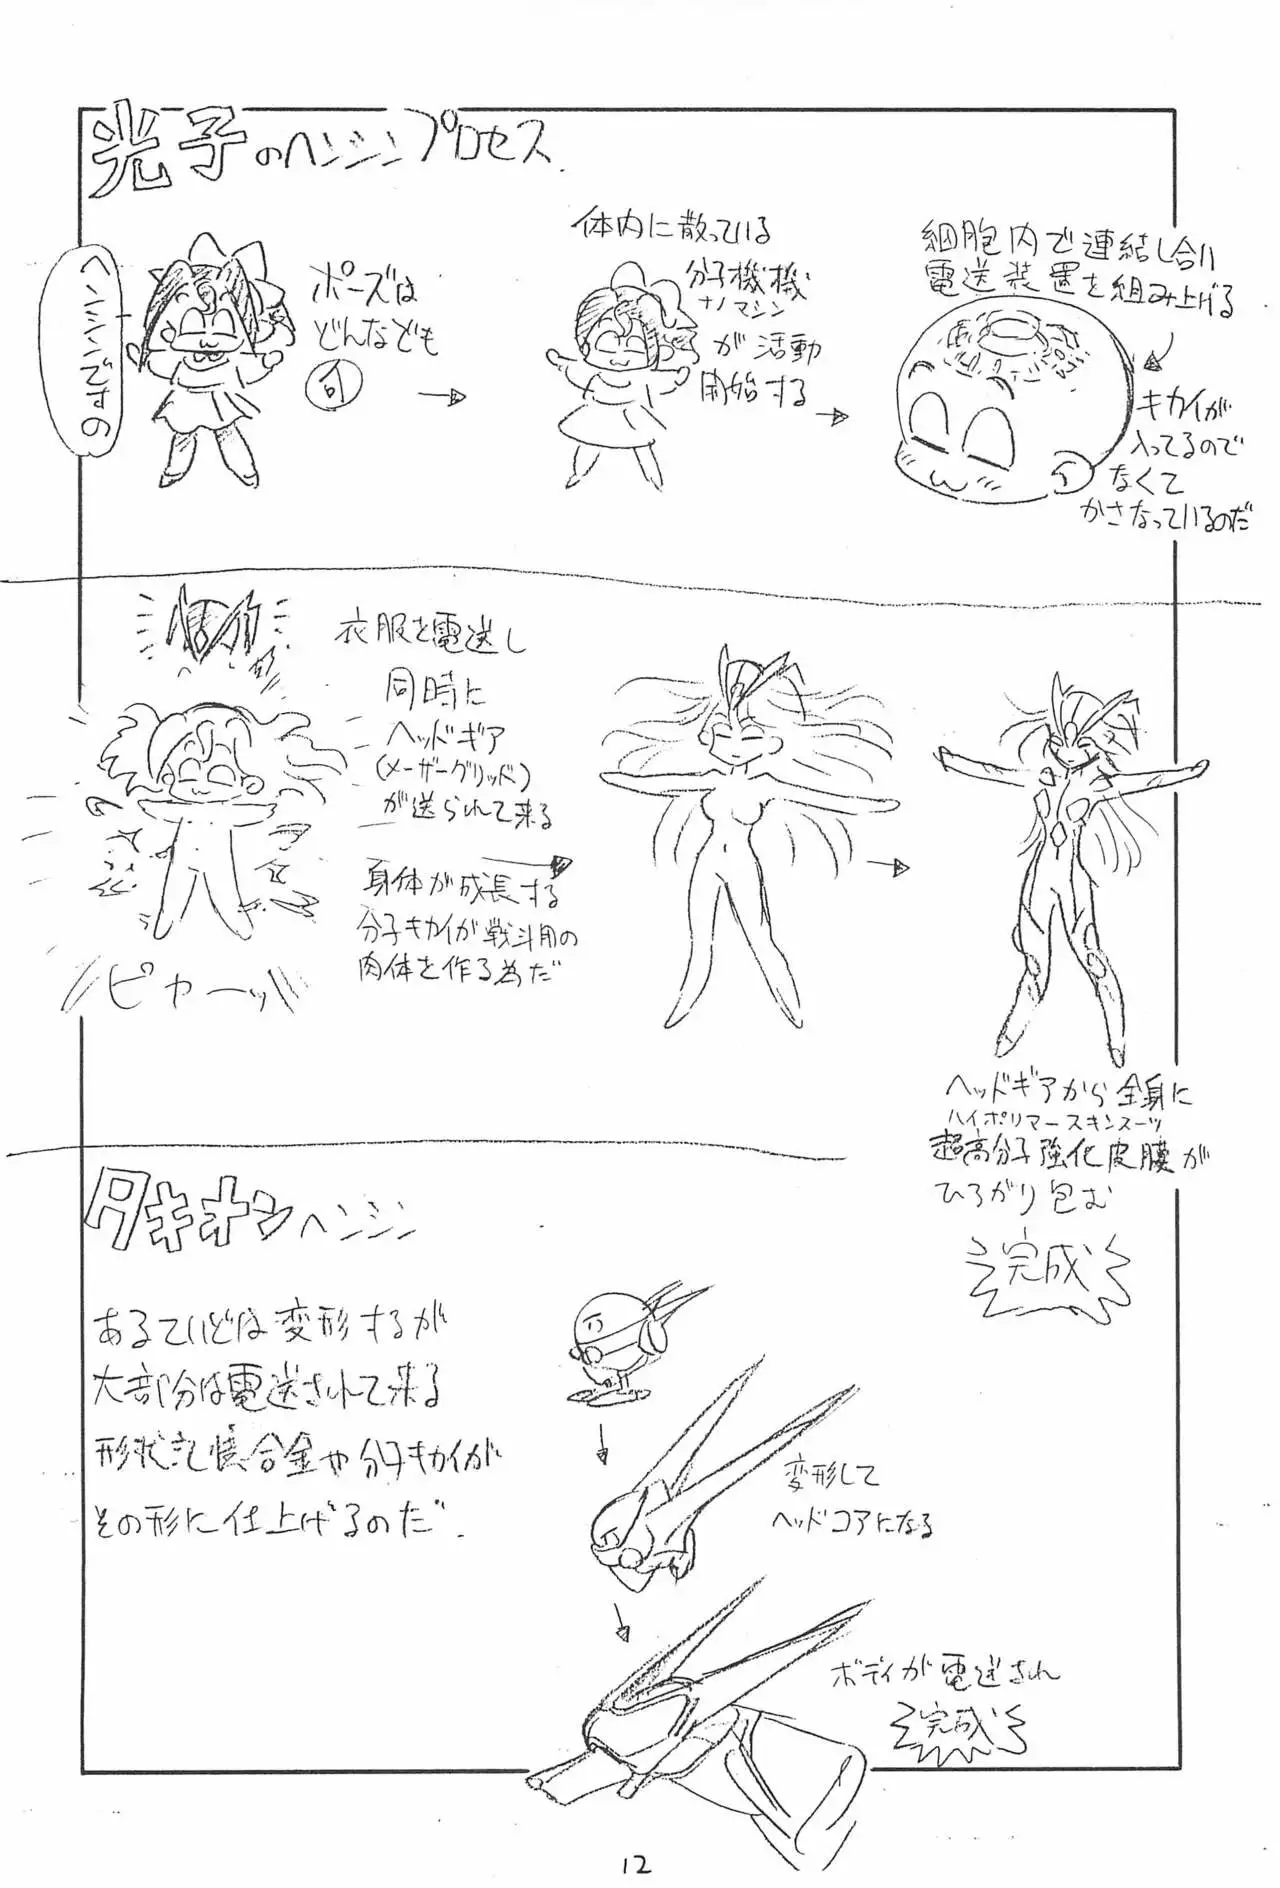 光子のヘンシンプロセス
ヘンシンですの
ポーズは
どんなども
可
体内に散っている
分子機機
ナノマシン
が活動
開始する
細胞内で連結し合い
電送装置を組み上げる
キカイが
入ってるので
なくて
かさなっているのだ
衣服を電送し
同時に
ヘッドギア
(メーザーグリッド)
が送られて来る
身体が成長する
分子キカイが戦斗用の
肉体を作る為だ
ピャーッ
ヘッドギアから全身に
ハイポリマースキンスーツ
超高分子強化皮膜が
ひろがり包む
完成
タキオンヘンシン
あるていどは変形するが
大部分は電送されて来る
形状記憶合金や分子キカイが
その形に仕上げるのだ.
変形して
ヘッドコアになる
ボディが電送され
完成
12